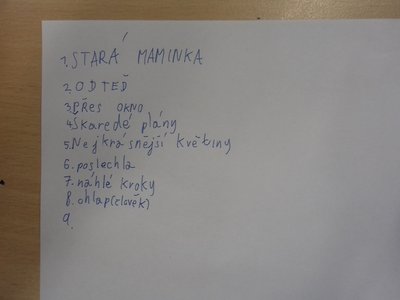 1. STARÁ MAMINKA
2. ODTEĎ
3. PŘES OKNO
4. Škaredé plány
5. Nejkrásnější květiny
6. poslechla
7. náhlé kroky
8. ohlap (člověk)
9.